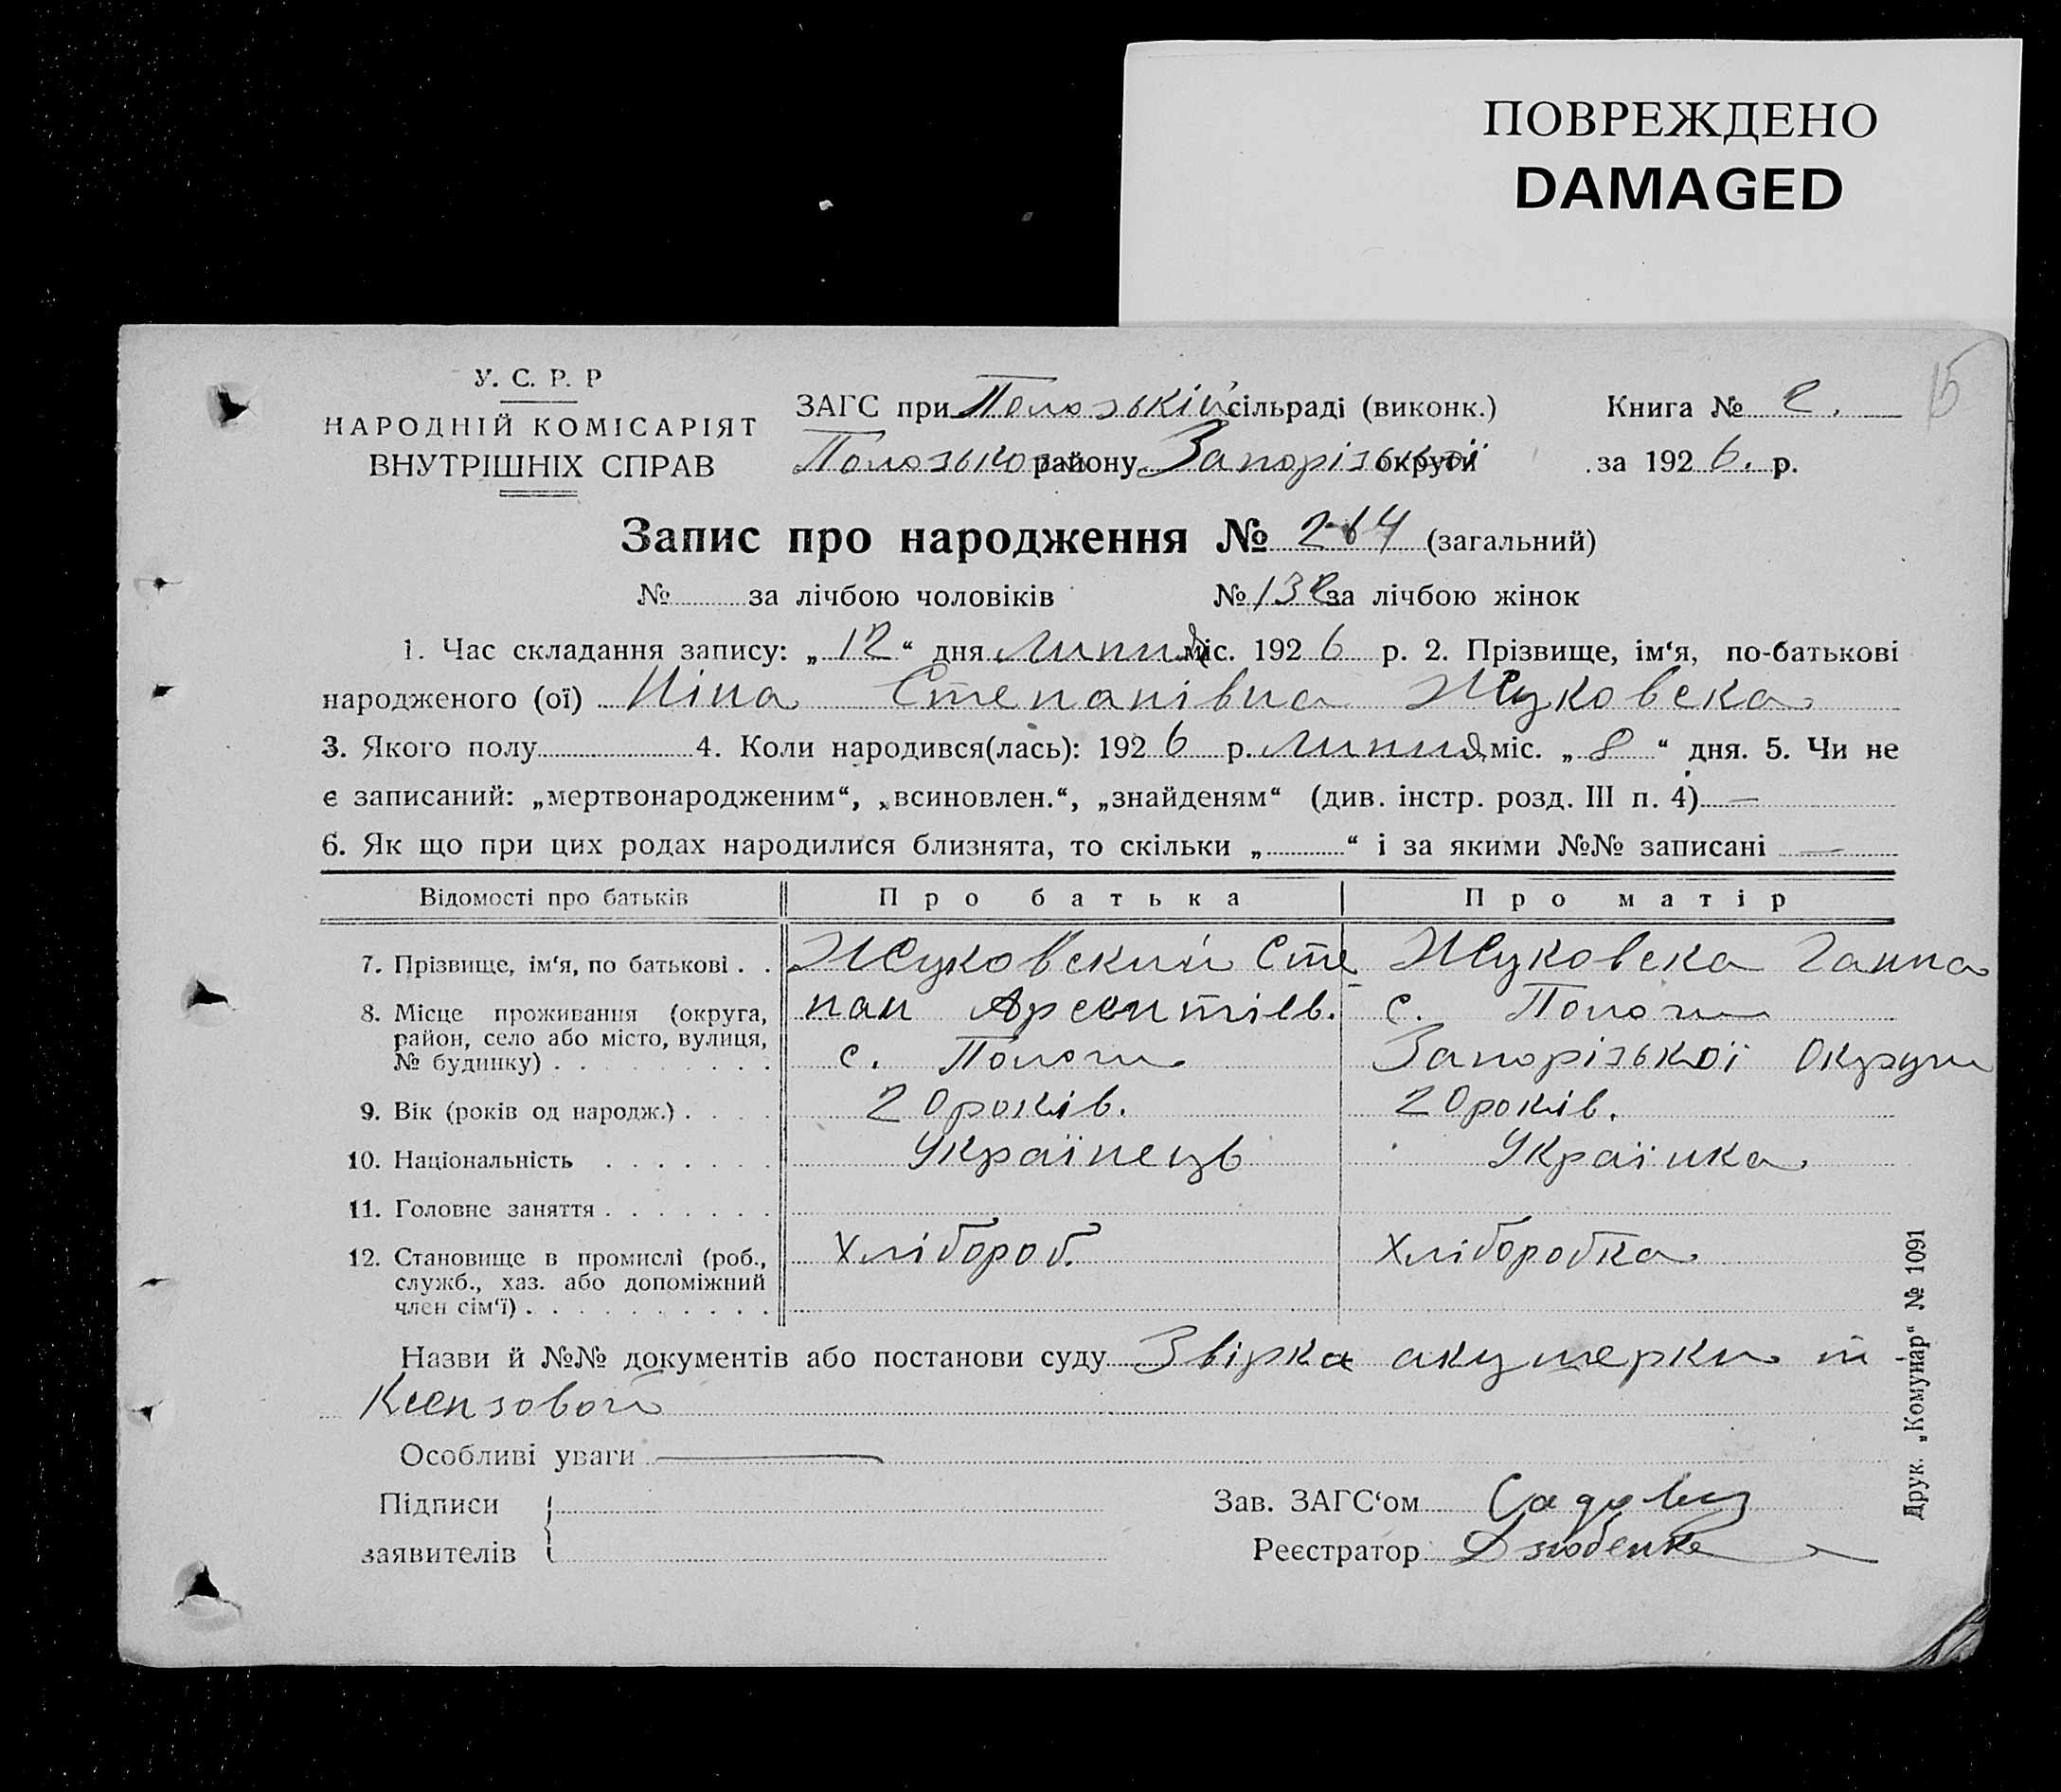 ПОВРЕЖДЕНО
DAMAGED
15
У. С. Р. Р
НАРОДНІЙ КОМІСАРІЯТ
ВНУТРІШНІХ СПРАВ
ЗАГС при Полозькій сільраді (виконк.)
Полозького району Запорізької округи
Книга № 2.
за 1926. р.
Запис про народження № 264 (загальний)
№ за лічбою чоловіків № 132 за лічбою жінок
1. Час складання запису: „12“ дня Липня міс. 1926 р. 2. Прізвище, ім‘я, по-батькові
народженого (ої) Ніна Степанівна Жуковска
3. Якого полу 4. Коли народився(лась): 1926 р. Липня міс. „8“ дня. 5. Чи не
є записаний: „мертвонародженим“, „всиновлен.“, „знайденям“ (див. інстр. розд. III п. 4) —
6. Як що при цих родах народилися близнята, то скільки „ “ і за якими №№ записані —
Відомості про батьків Про батька Про матір
7. Прізвище, ім‘я, по батькові . . Жуковский Сте Жуковска Ганна
8. Місце проживання (округа, район, село або місто, вулиця, № будинку) . . . . . . . . . пан Арсентіев. с. Пологи
с. Пологи Запорізької Округи
9. Вік (років од народж.) . . . . 20 років. 20 років.
10. Національність . . . . . . . Українець Українка
11. Головне заняття . . . . . . .
12. Становище в промислі (роб., служб., хаз. або допоміжний член сім‘ї) . . . . . . . . . . Хлібороб. Хлібаробка
Назви й №№ документів або постанови суду Звірка акушерки
Особливі уваги —
Підписи
заявителів
Зав. ЗАГС‘ом
Реєстратор Дзюбенко
Друк. „Комунар“ № 1091